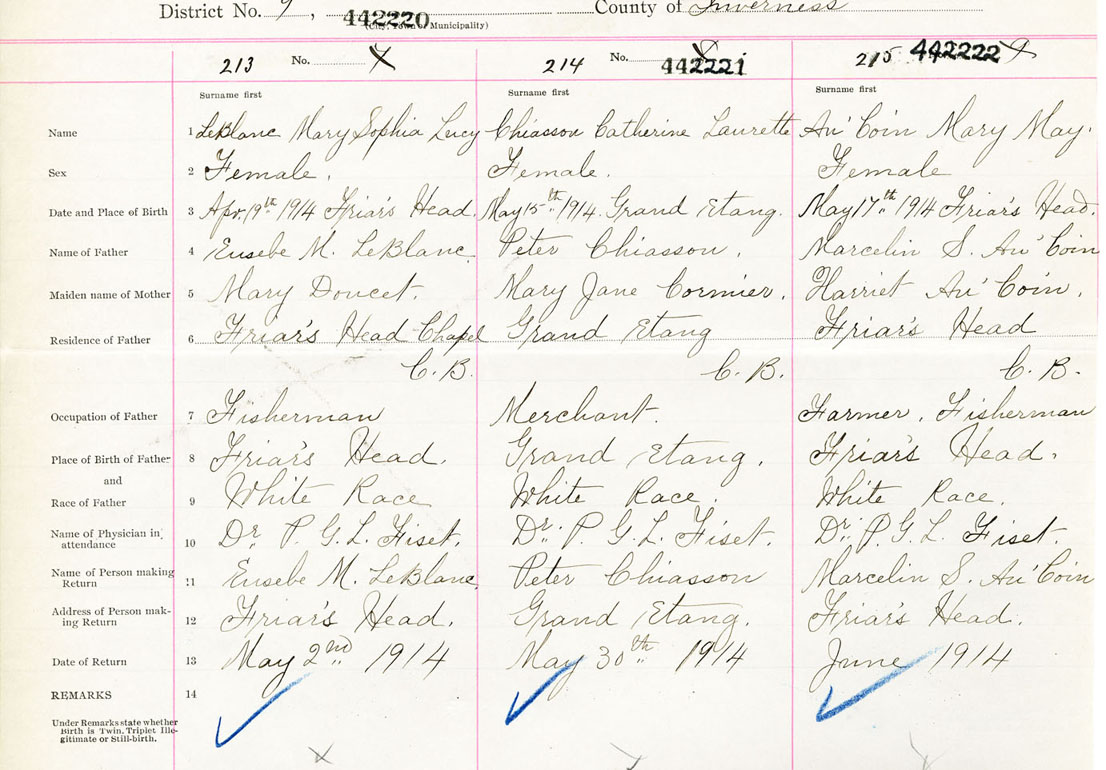 District No. 9, 442220 County of Inverness
(City, Town or Municipality)
213 No. X 214 No. X 442221 215 442222
Surname first Surname first Surname first
Name 1 LeBlanc Mary Sophia Lucy Chiasson Catherine Laurette Au'Coin Mary May.
Sex 2 Female. Female. Female
Date and Place of Birth 3 Apr. 19th 1914 Friar's Head. May 15th 1914. Grand Etang. May 17th 1914 Friar's Head.
Name of Father 4 Eusebe M. LeBlanc. Peter Chiasson. Marcelin S. Au'Coin
Maiden name of Mother 5 Mary Doucet. Mary Jane Cormier. Harriet Au'Coin.
Residence of Father 6 Friar's Head Chapel Grand Etang Friar's Head
C. B. C. B. C. B.
Occupation of Father 7 Fisherman Merchant. Farmer, Fisherman
Place of Birth of Father 8 Friar's Head. Grand Etang. Friar's Head.
and
Race of Father 9 White Race White Race. White Race.
Name of Physician in attendance 10 Dr. P. G. L. Fiset. Dr. P. G. L. Fiset. Dr. P. G. L. Fiset.
Name of Person making Return 11 Eusebe M. LeBlanc Peter Chiasson Marcelin S. Au'Coin
Address of Person mak-ing Return 12 Friar's Head. Grand Etang. Friar's Head.
Date of Return 13 May 2nd 1914 May 30th 1914 June 1914
REMARKS 14
Under Remarks state whether
Birth is Twin, Triplet Ille-
gitimate or Still-birth.